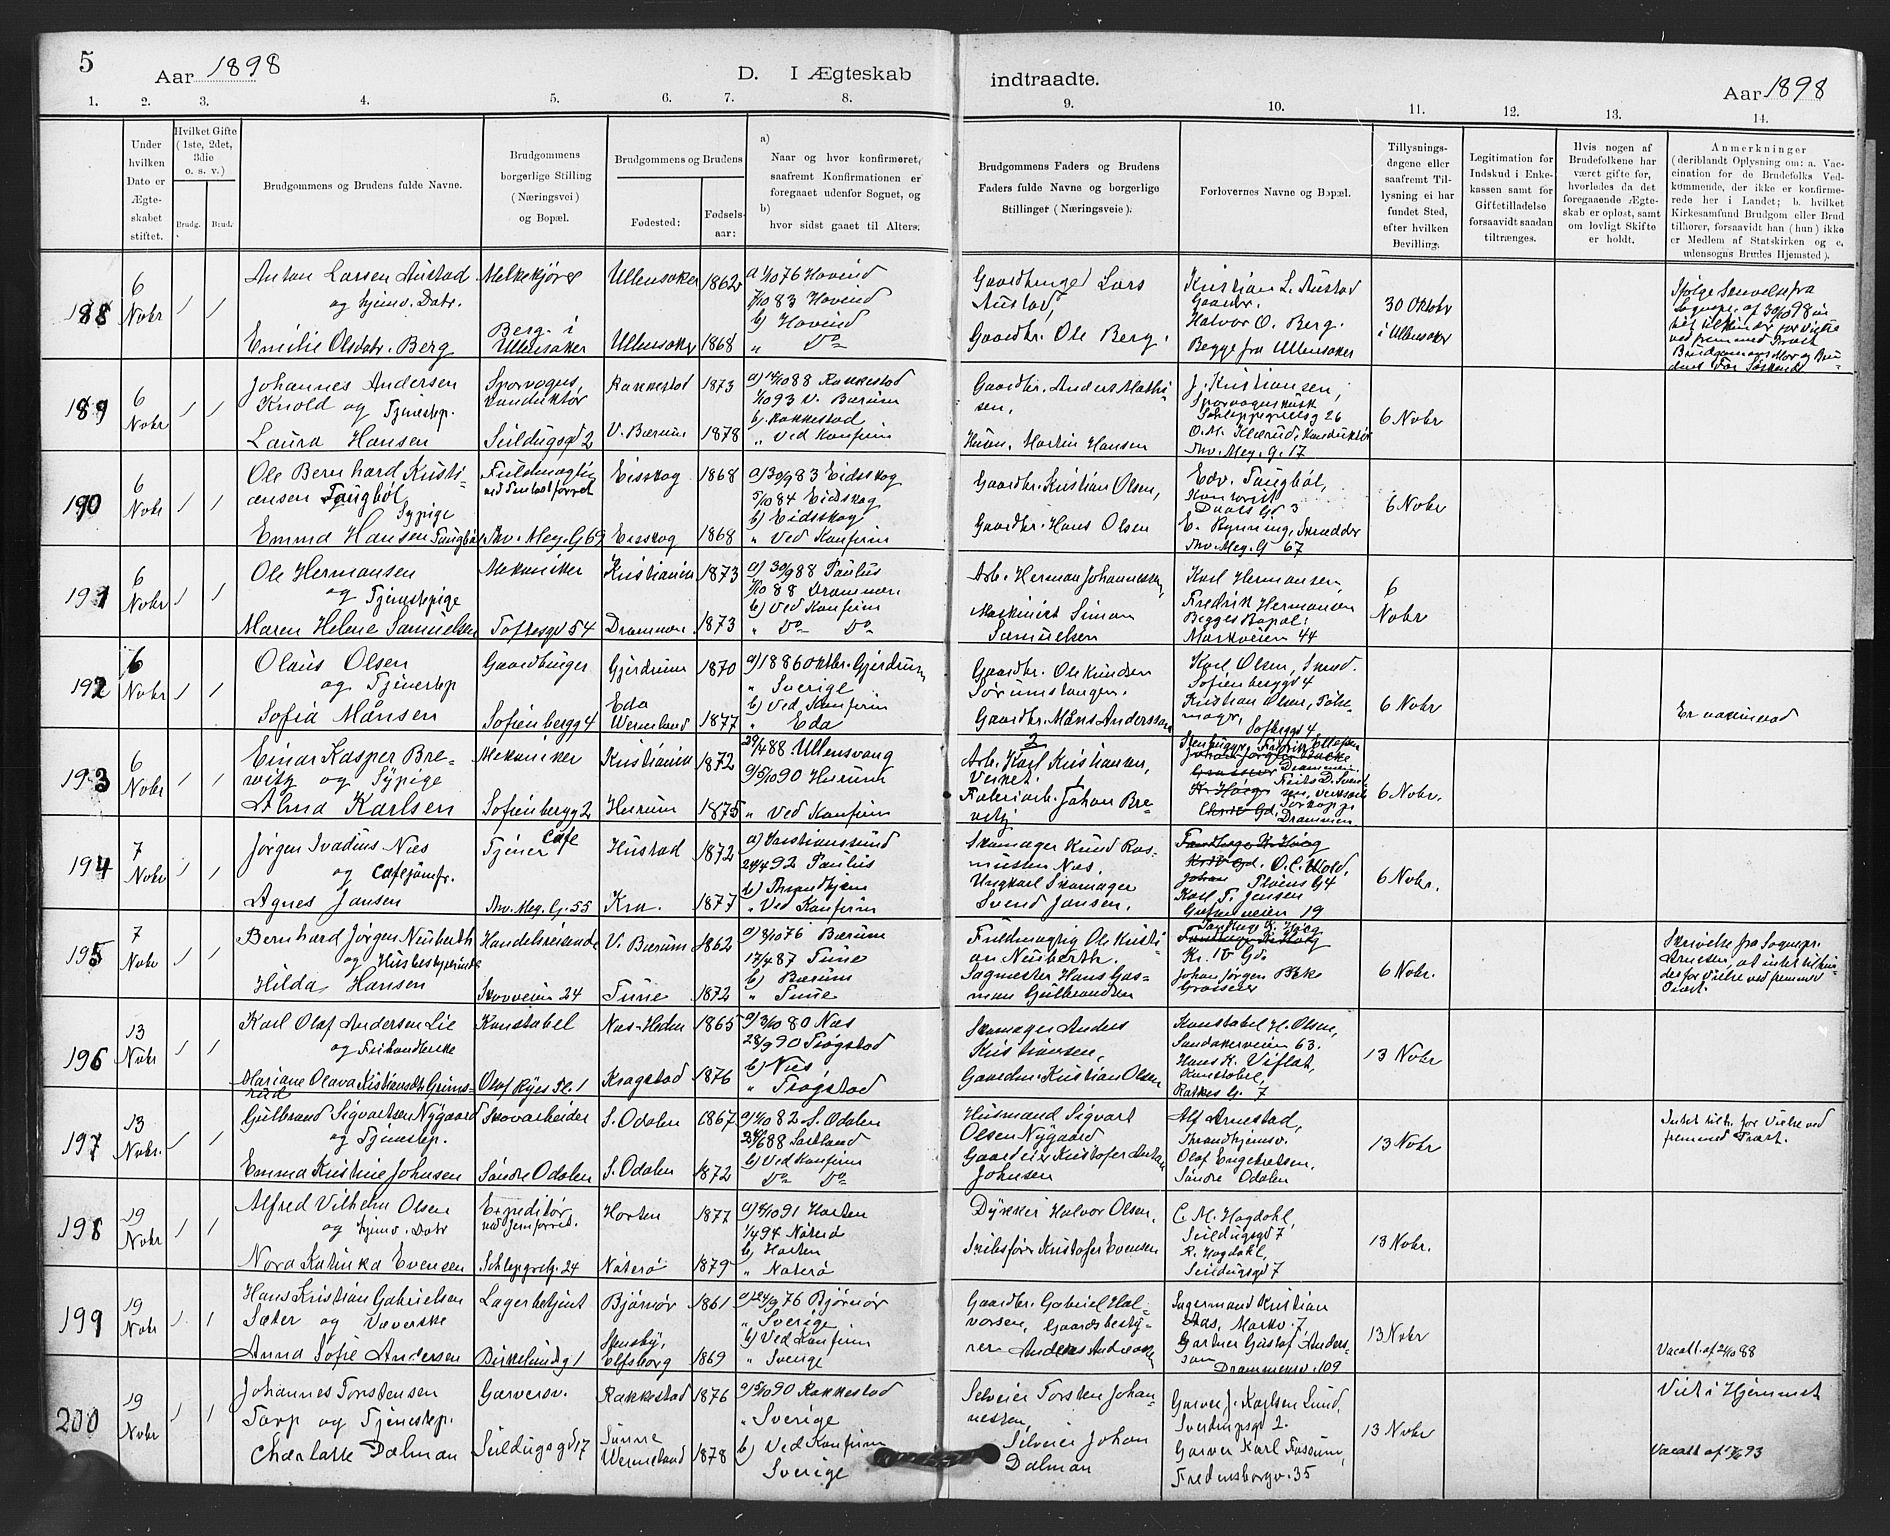 5
Aar 1898
D. I Ægteskab
indtraadte.
Aar 1898
1. 2. 3. 4. 5. 6. 7. 8. 9. 10. 11. 12. 13. 14.
Under hvilken Dato er Ægteskabet stiftet.
Hvilket Gifte (1ste, 2det, 3die o. s. v.)
Brudg. Brud.
Brudgommens og Brudens fulde Navne.
Brudgommens borgerlige Stilling (Næringsvei) og Bopæl.
Brudgommens og Brudens
Fødested:
Fødselsaar:
a) Naar og hvor konfirmeret, saafremt Konfirmationen er foregaaet udenfor Sognet, og
b) hvor sidst gaaet til Alters.
Brudgommens Faders og Brudens Faders fulde Navne og borgerlige Stillinger (Næringsveie).
Forlovernes Navne og Bopæl.
Tillysningsdagene eller saafremt Tillysning ei har fundet Sted, efter hvilken Bevilling.
Legitimation for Indskud i Enkekassen samt for Giftetilladelse forsaavidt saadan tiltrænges.
Hvis nogen af Brudefolkene har været gifte før, hvorledes da det foregaaende Ægteskab er opløst, samt om lovligt Skifte er holdt.
Anmerkninger (deriblandt Oplysning om: a. Vaccination for de Brudefolks Vedkommende, der ikke er konfirmerede her i Landet; b. hvilket Kirkesamfund Brudgom eller Brud tilhører, forsaavidt han (hun) ikke er Medlem af Statskirken og c. udensogns Brudes Hjemsted).
188
6 Nobr
1 1
Anton Larsen Austad
og hjmv. Datr.
Emilie Olsdatr. Berg
Melkekjører
Berg i Ullensaker
Ullensaker 1862
Ullensaker 1868
a 1/10 76 Hovind
7/10 83 Hovind
b) Hovind
" Do
Gaardbruger Lars Austad,
Gaardbr. Ole Berg.
Kristian L. Austad
Gaardbr.
Halvor O. Berg.
Begge fra Ullensaker
30 Oktobr
i Ullensaker
189
6 Nobr
1 1
Johannes Andersen
Knold og Tjenestep.
Laura Hansen
Sporvogns,
konduktør
Seildugsgd 2
Rakkestad 1873
V. Bærum 1878
a) 14/10 88 Rakkestad
1/10 93 V. Bærum
b) Rakkestad
" Ved Konfirm
Gaardbr. Anders Mathisen,
Husm. Martin Hansen
J. Kristiansen,
Sporvognskusk
Schleppegrellsg 26
O. M. Klærud, Konduktør
Thv. Mey. g. 17
6 Nobr
190
6 Nobr
1 1
Ole Bernhard Kristiansen Taugbøl
Sypige
Emma Hansen Taugbøl
Fuldmægtig
Thv. Mey. G 69
Eidskog 1868
Eidskog 1868
a) 30/9 83 Eidskog
5/10 84 Eidskog
b) Eidskog
" Ved Konfirm
Gaardbr. Kristian Olsen,
Gaardbr. Hans Olsen
Edv. Taugbøl,
Kontorist
Daas Gd 3
E. Rynning, Skrædder
Thv. Mey. G 67
6 Nobr
191
6 Nobr
1 1
Ole Hermansen
og Tjenestepige
Maren Helene Samuelsen
Mekaniker
Toftesgd 54
Kristiania 1873
Drammen 1873
a) 30/9 88 Paulus
7/10 88 Drammen
b) Ved Konfirm
" Do Do
Arb. Herman Johannessen,
Maskinist Simon Samuelsen
Karl Hermansen
Fredrik Hermansen
Begges Bopæl:
Markveien 44
6 Nobr
192
6 Nobr
1 1
Olaus Olsen
og Tjenestep
Sofia Månsen
Gaardbruger
Sofienbergg 4
Gjerdrum 1870
Eda Wermland 1877
a) 1886 oktbr. Gjerdrum
" Sverige
b) Ved Konfirm
" Eda
Gaardbr. Ole Knudsen
Sørumslangen.
Gaardbr. Måns Andersson
Karl Olsen, Smed.
Sofienberggd 4
Kristian Olsen,
Sofbergg 4
6 Nobr
Er vaxinerad
193
6 Nobr
1 1
Einar Kasper Brevitz og Sypige
Alma Karlsen
Mekaniker
Sofienbergg 2
Kristiania 1872
Hurum 1875
29/4 88 Ullensvang
9/5/10 90 Hurum
" Ved Konfirm
2
Arb. Karl Kristiansen,
Verket.
1
Fabrikarb. Johan Brevitz
Stenhugger Fredrik Ellefsen
Drammen
Frits D. Svendsen, Verksarb
Drammen
6 Nobr.
194
7 Nobr
1 1
Jørgen Ivadius Næs
og Cafejomfr.
Agnes Jansen
Tjener Café
Thv. Mey. G. 55
Hustad 1872
Kra. 1877
a) Kristianssund
24/4 92 Paulus
b) Throndhjem
" Ved Konfirm
Skomager Knud Rasmussen Næs.
Ungkarl Skomager
Svend Jansen.
O. C. Wold,
Pløens G 4
Karl F. Jensen
Grefsenveien 19
6 Nobr.
195
7 Nobr
1 1
Bernhard Jørgen Neuberth
og Husbestyrerinde
Hilda Hansen
Handelsreisende
Skovveien 24
V. Bærum 1862
Tune 1872
a) 8/10 76 Bærum
17/4 87 Tune
b) Bærum
" Tune
Fuldmægtig Ole Kristian Neuberth.
Sagmester Hans Gasman Gulbrandsen
Tandlæge K. Høeg
Kr. IV Gd.
Johan Jørgen Bakke
Grosserer
6 Nobr.
Skrivelse fra Sognepr.
196
13 Nobr
1 1
Karl Olaf Andersen Lie
og Frihandlerske
Mariane Olava Kristiansdtr Grimsrud
Konstabel
Olaf Ryes Pl. 1
Næs-Hedm 1865
Kragstad 1876
a) 3/10 80 Næs
28/9 90 Trøgstad
b) Næs,
" Trøgstad
Skomager Anders Kristiansen,
Gaardm. Kristian Olsen
Konstabel H. Olsen,
Sandakerveien 63.
Hans K. Viflat,
Konstabel,
Ratkes G. 7
13 Nobr
197
13 Nobr.
1 1
Gulbrand Sigvartsen Nygaard
og Tjenestep.
Emma Kristine Johnsen
Skovarbeider
Søndre Odalen
S. Odalen 1867
S. Odalen 1872
a) 1/10 82 S. Odalen
24/6 88 Sørland
b) Ved Konfirm
" Do Do
Husmand Sigvart
Olsen Nygaard
Gaardeier Kristofer Anton
Johnsen
Alf Arnestad,
Throndhjemsv.
Olaf Engebretsen,
Søndre Odalen
13 Nobr
Intet tilh. for Vielse ved
fremmed Præst.
198
19 Nobr
1 1
Alfred Vilhelm Olsen
og hjmv. Datr
Nora Katinka Evensen
Expeditør
ved Jernforret.
Schleppegrelg. 24
Horten 1877
Nøterø 1879
a) 4/10 91 Horten
1/4 94 Nøterø
b) Horten
" Nøterø
Dykker Halvor Olsen,
Skibsfører Kristofer Evensen
C. M. Hogdahl,
Seildugsgd 7
R. Hogdahl,
Seildugsgd 7
13 Nobr.
199
19 Nobr
1 1
Hans Kristian Gabrielsen
Sæter og Væverske
Anna Sofie Andersen
Lagerbetjent
Birkelundg 1
Bjørnør 1861
Elfsborg 1869
a) 24/9 76 Bjørnør
" Sverige
b) Ved Konfirm
" Sverige
Gaardbr. Gabriel Halvorsen, Gaardsbestyrer Anders Andreassen
Lagermand Kristian
Aas, Markv. 7
Gartner Gustaf Andersson
Drammensv. 109
13 Nobr
Vacatt. af 2/10 88
200
19 Nobr
1 1
Johannes Torstensen
Tarp og Tjenestep.
Charlotte Dalman
Garversv.
Seildugsgd 17
Rakkestad 1876
Sunne Wermeland 1878
a) 5/10 90 Rakkestad
" Sverige
b) Ved Konfirm
Sverige
Selveier Torsten Johannessen,
Selveier Johan
Dalman
Garver J. Karlsen Lund,
Sverdrupsgd 2.
Garver Karl Fossum,
Fredensborgv. 35
13 Nobr
Viet i Hjemmet
Vacatt af 17/6 93